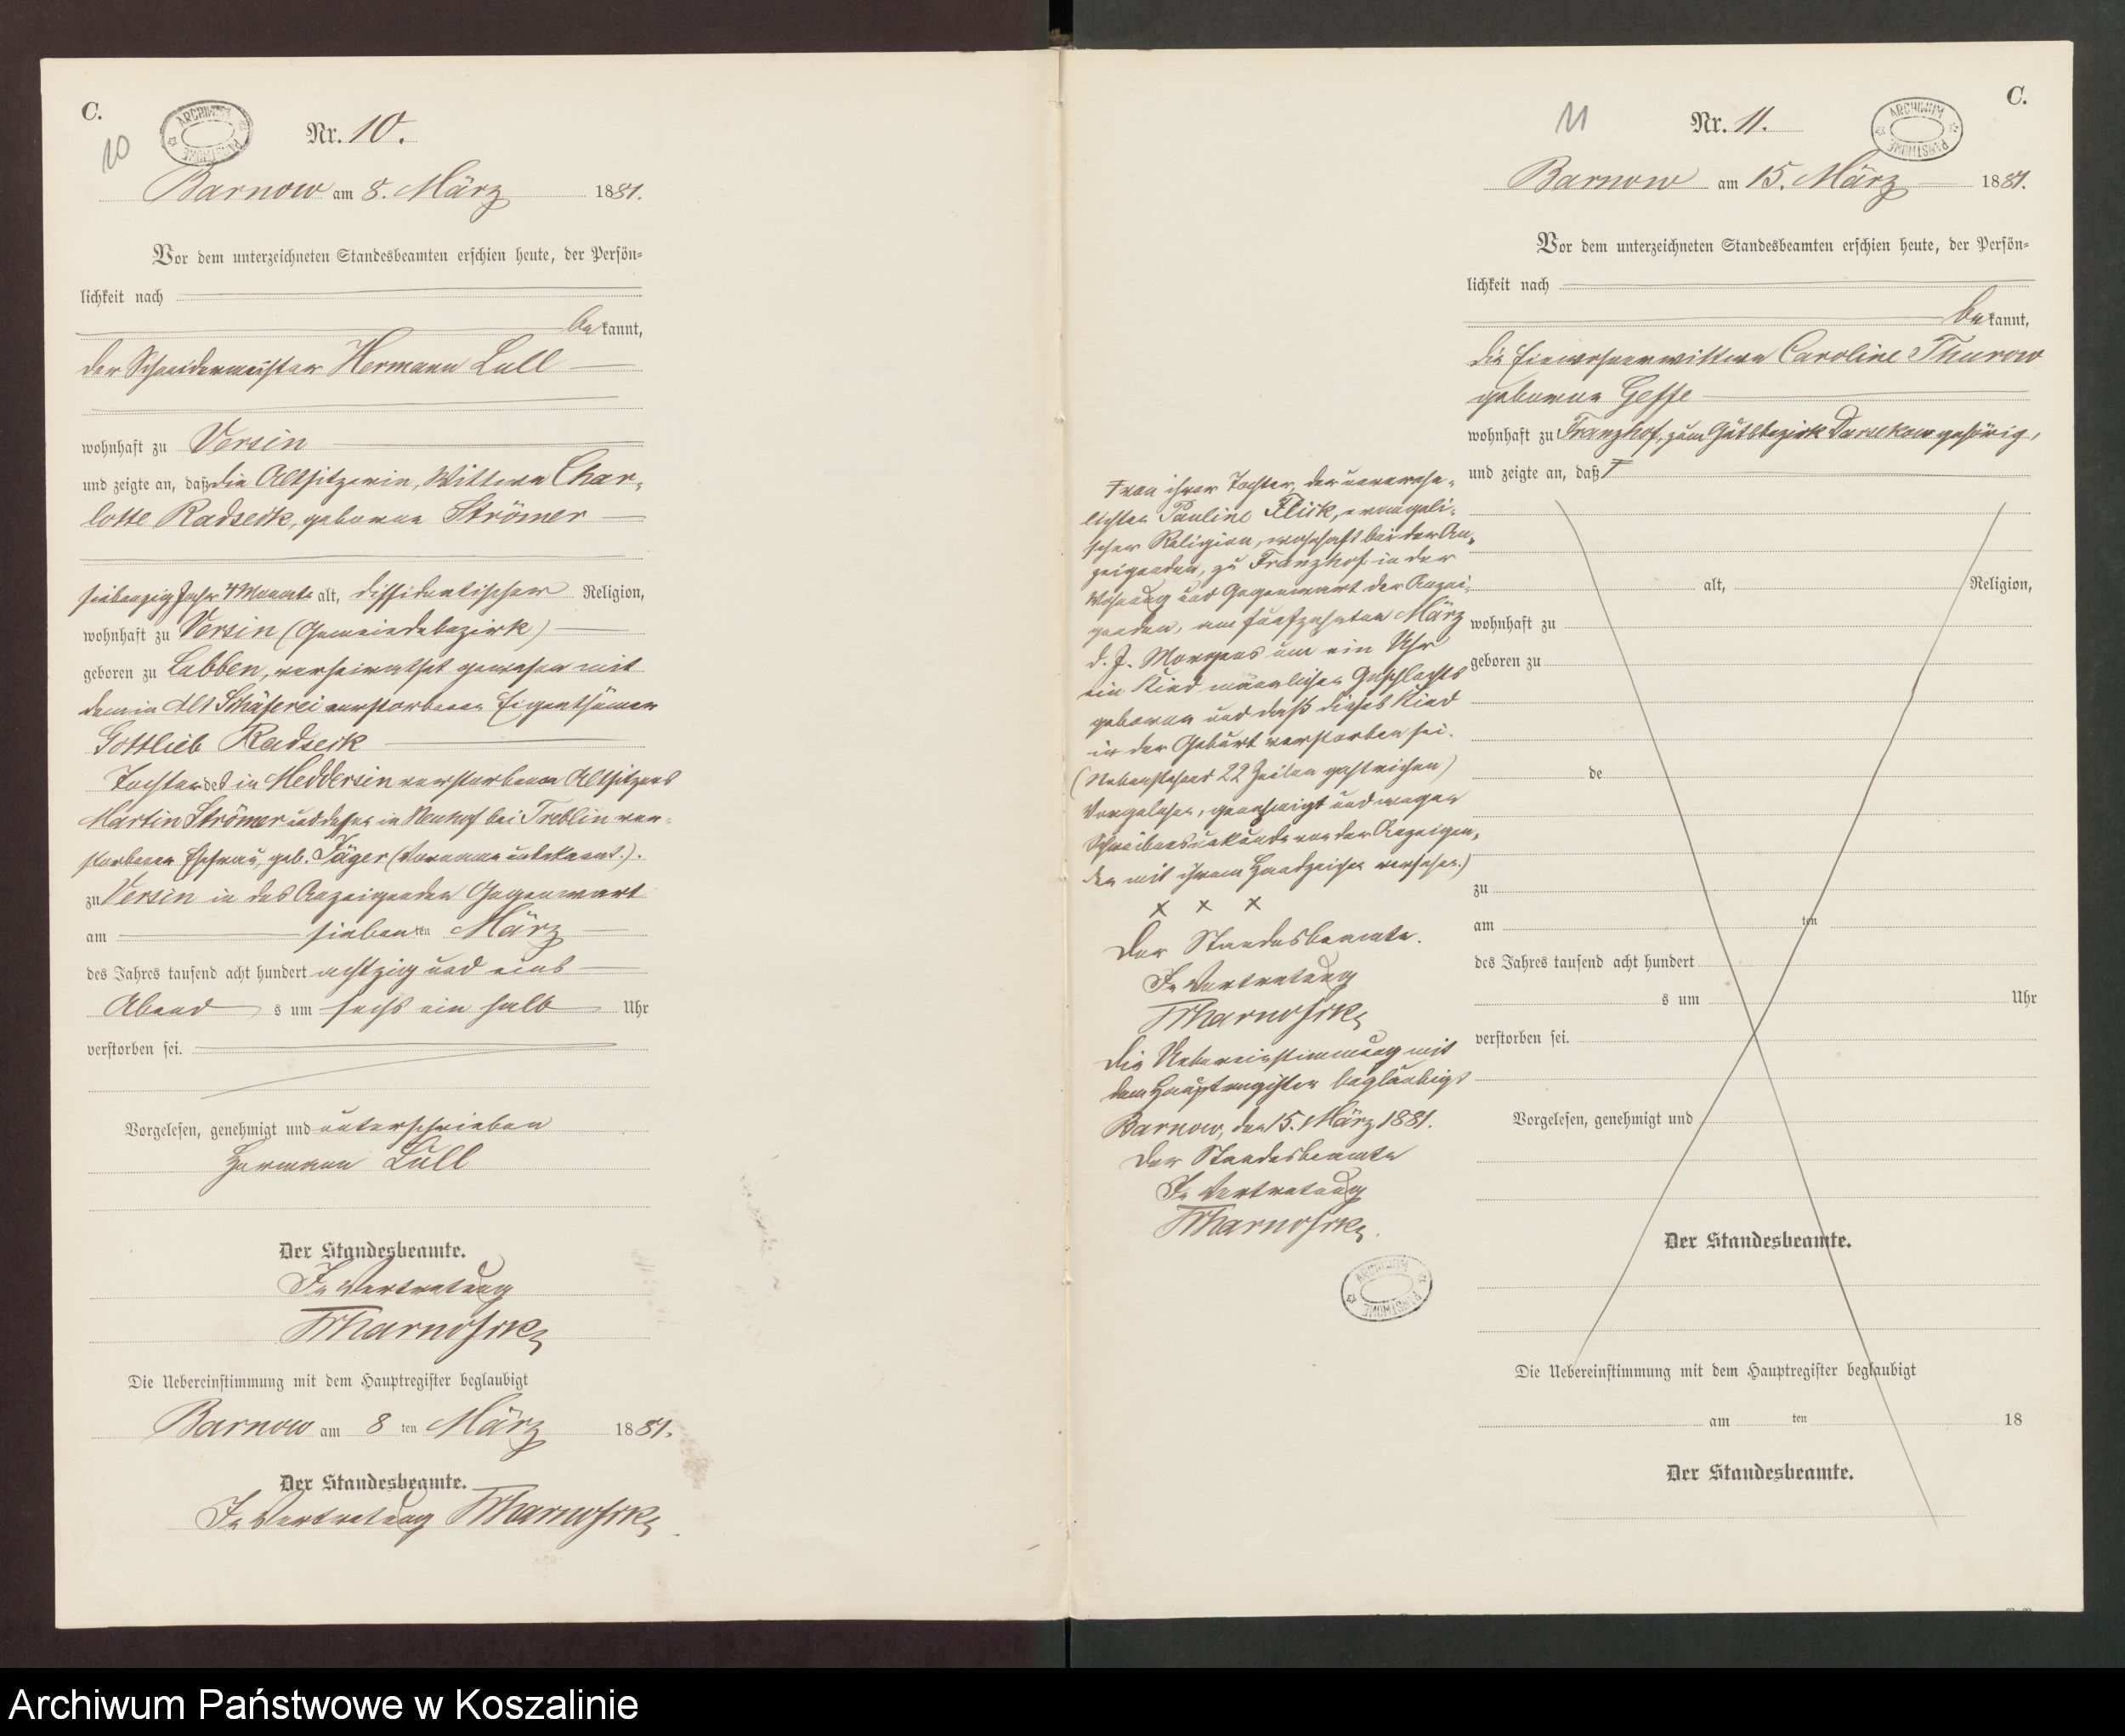 C.
10
ARCHIWUM PAŃSTWOWE
Nr. 10.
Barnow am 8. März 1881.
Vor dem unterzeichneten Standesbeamten erschien heute, der Persön-
lichkeit nach
bekannt,
der Schneidermeister Hermann Lüll
wohnhaft zu Versin
und zeigte an, daß die Altsitzerin, Wittwe Char-
lotte Radseck, geborene Strömer
siebenzig Jahr 4 Monate alt, dissidentischer Religion,
wohnhaft zu Versin (Gemeindebezirk)
geboren zu Lubben, verheirathet gewesen mit
dem in Alt Schäferei verstorbenen Eigenthümer
Gottlieb Radseck
Tochter des in Meddersin verstorbenen Altsitzers
Martin Strömer und dessen in Neuhof bei Treblin ver-
storbenen Ehefrau, geb. Jäger (Vorname unbekannt.).
zu Versin in des Anzeigenden Gegenwart
am siebenten März
des Jahres tausend acht hundert achtzig und eins
Abends um sechs ein halb Uhr
verstorben sei.
Vorgelesen, genehmigt und unterschrieben
Hermann Lüll
Der Standesbeamte.
In Vertretung
Die Uebereinstimmung mit dem Hauptregister beglaubigt
Barnow am 8 ten März 1881.
Der Standesbeamte.
In Vertretung
C.
11
Nr. 11.
ARCHIWUM PAŃSTWOWE
Barnow am 15. März 1881.
Vor dem unterzeichneten Standesbeamten erschien heute, der Persön-
lichkeit nach
bekannt,
die Einwohnerwittwe Caroline Thurow
geborene Gesse
wohnhaft zu Franzhof, zum Gutsbezirk Darsekow gehörig,
und zeigte an, daß
von ihrer Tochter, der unverehe-
lichten Pauline Flick, evangeli-
scher Religion, wohnhaft bei der An-
zeigenden, zu Franzhof in der
Wohnung und Gegenwart der Anzei-
genden, am fünfzehnten März
d. J. Morgens um ein Uhr
ein Kind männlichen Geschlechts
geboren und daß dieses Kind
in der Geburt verstorben sei.
(Nebenstehend 22 Zeilen gestrichen)
Vorgelesen, genehmigt und wegen
Schreibensunkunde von der Anzeigen-
den mit ihrem Handzeichen versehen.)
x x x
Der Standesbeamte.
In Vertretung
Die Uebereinstimmung mit
dem Hauptregister beglaubigt
Barnow, den 15. März 1881.
Der Standesbeamte
In Vertretung
ARCHIWUM PAŃSTWOWE
alt, Religion,
wohnhaft zu
geboren zu
de
zu
am ten
des Jahres tausend acht hundert
s um Uhr
verstorben sei.
Vorgelesen, genehmigt und
Der Standesbeamte.
Die Uebereinstimmung mit dem Hauptregister beglaubigt
am ten 18
Der Standesbeamte.
Archiwum Państwowe w Koszalinie